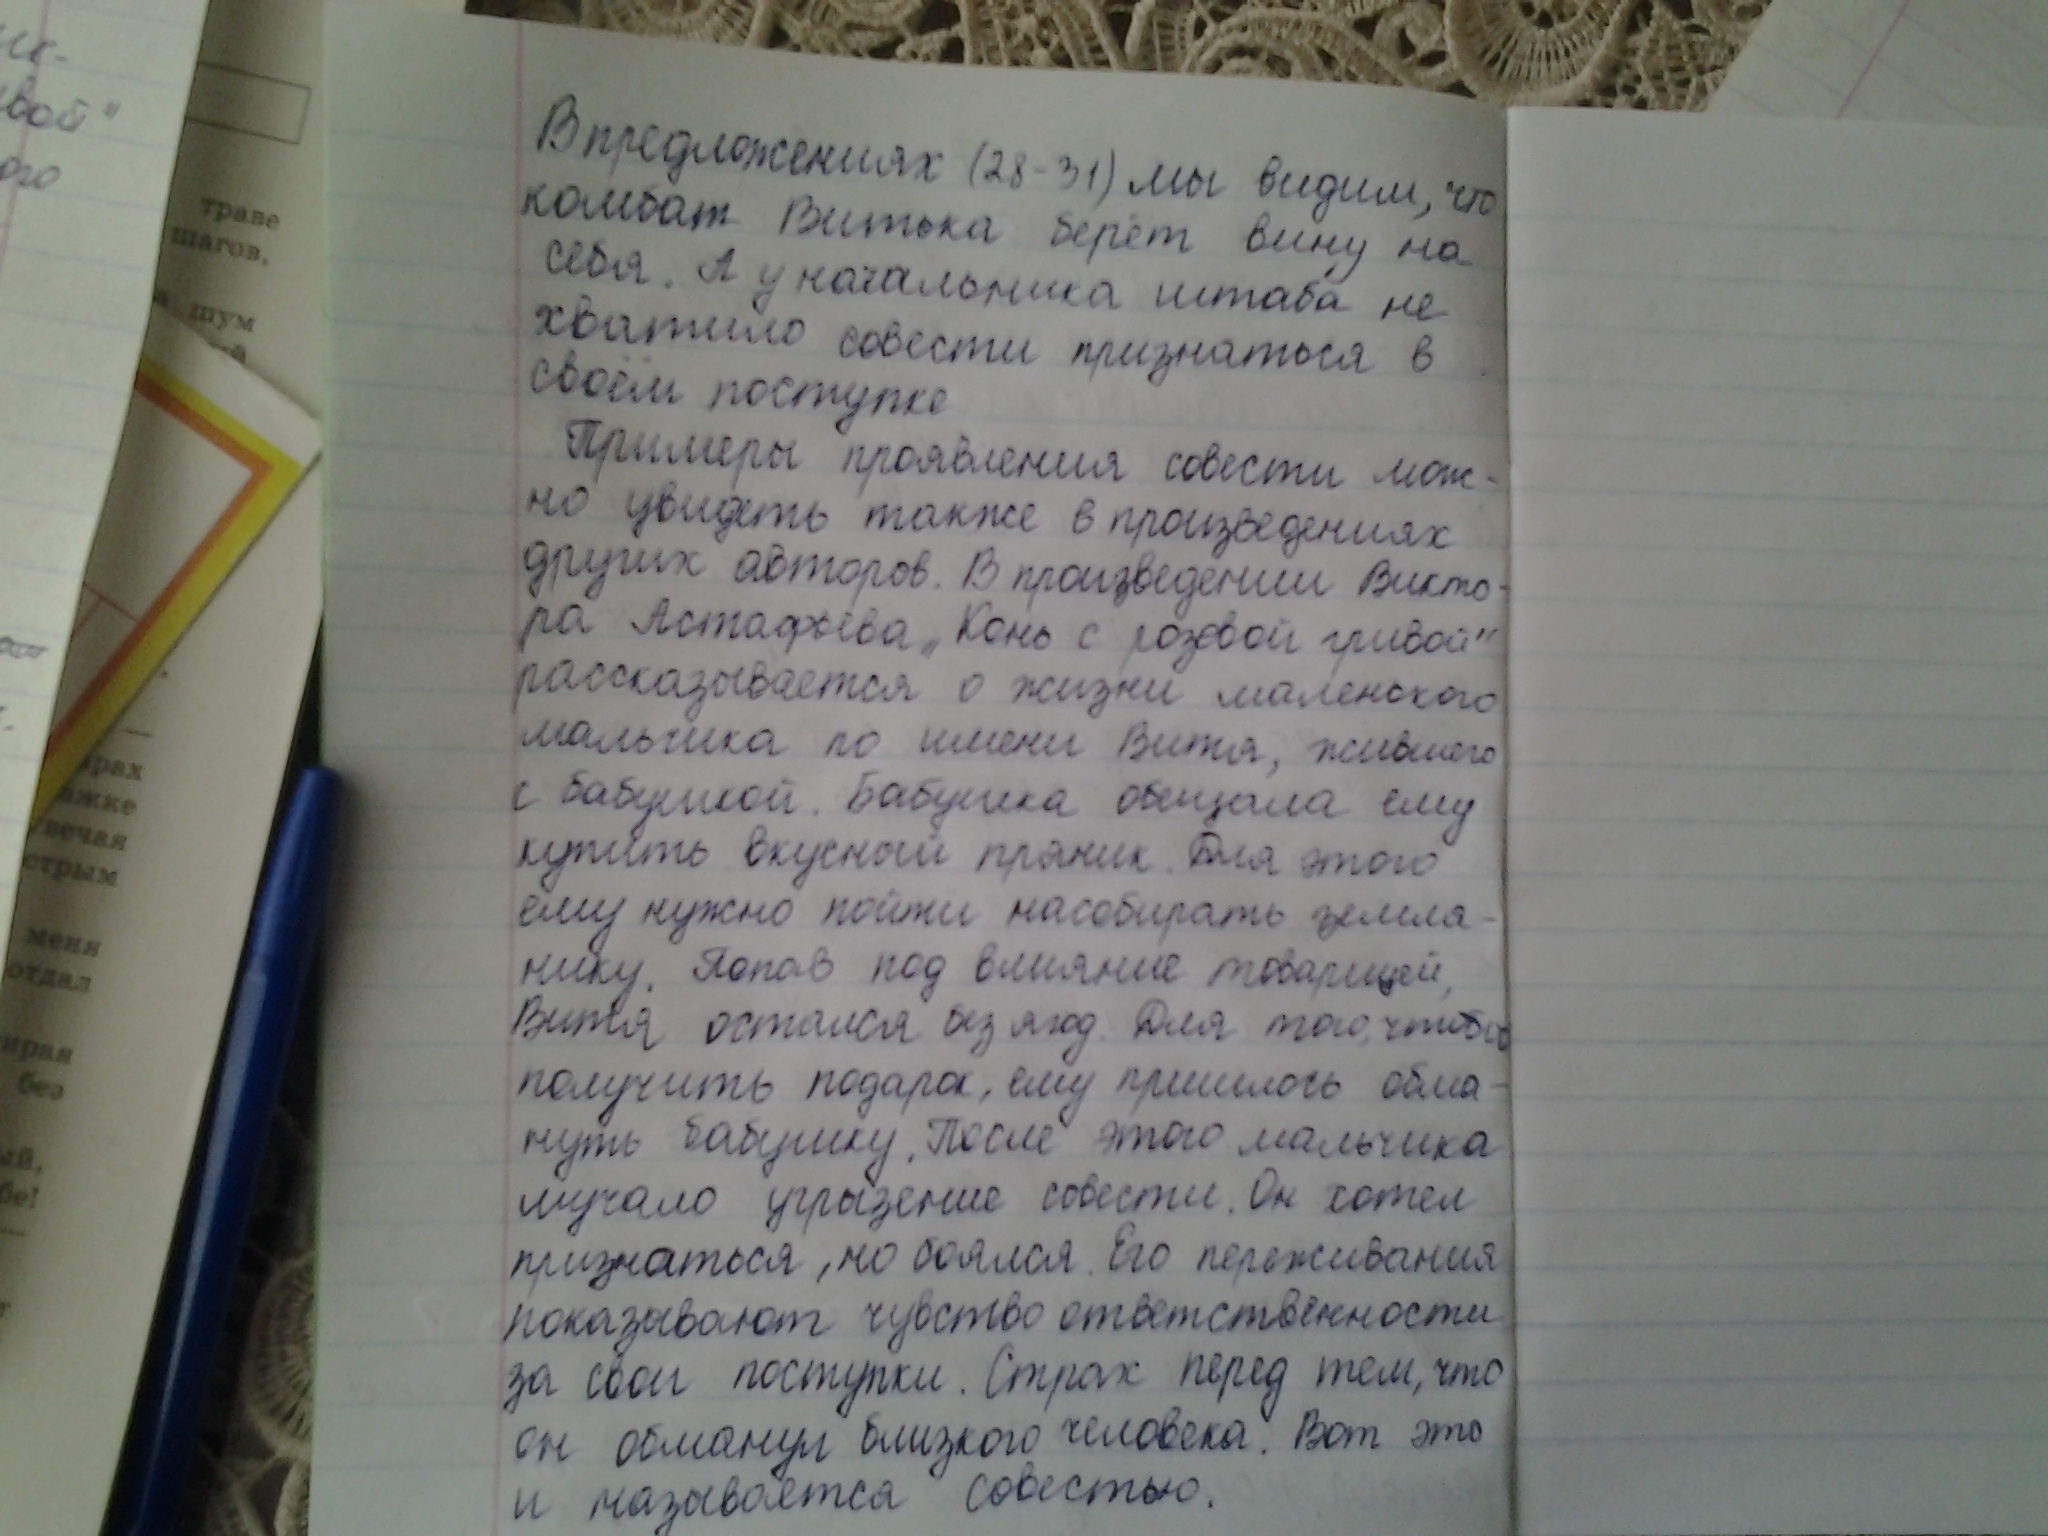 ик-
ивой"
ого
траве
шагов,
шум
В предложениях (28-31) мы видим, что
комбат Витька берёт вину на
себя. А у начальника штаба не
хватило совести признаться в
своём поступке
Примеры проявления совести мож-
но увидеть также в произведениях
других авторов. В произведении Викто-
ра Астафьева „Конь с розовой гривой"
рассказывается о жизни маленького
мальчика по имени Витя, жившего
с бабушкой. Бабушка обещала ему
купить вкусный пряник. Для этого
ему нужно пойти насобирать земля-
нику. Попав под влияние товарищей,
Витя остался без ягод. Для того, чтобы
получить подарок, ему пришлось обма-
нуть бабушку. После этого мальчика
мучало угрызение совести. Он хотел
признаться, но боялся. Его переживания
показывают чувство ответственности
за свои поступки. Страх перед тем, что
он обманул близкого человека. Вот это
и называется совестью.
рах
ажке
вечая
стрым
меня
отдал
ирая
без
ый,
бе!